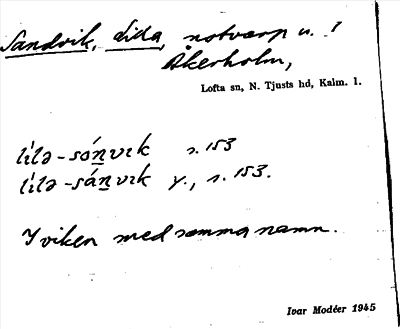 Sandvik, Lilla, notvarp u. !
Åkerholm,
Lofta sn, N. Tjusts hd, Kalm. l.
lílə-sónvɩk s. 153
lílə-sánvɩk y., s. 153.
I viken med samma namn.
Ivar Modéer 1945